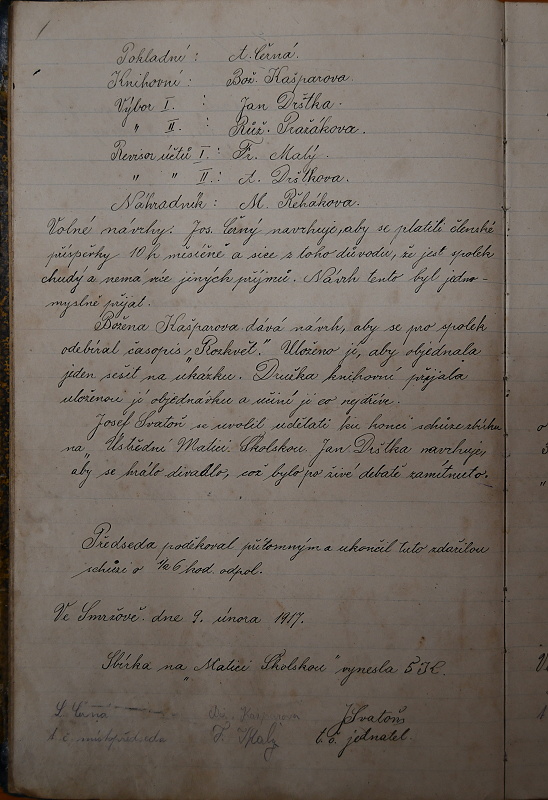 Pokladní : A. Černá.
Knihovní : Bož. Kašparova.
Výbor I. : Jan Drštka.
" II. : Růž. Pražákova.
Revisor účtů I : Fr. Malý.
" " II : A. Drštkova.
Náhradník : M. Řehákova.
Volné návrhy. Jos. Černý navrhuje, aby se platili členské
příspěvky 10 h měsíčně a sice z toho důvodu, že jest spolek
chudý a nemá nic jiných příjmů. Návrh tento byl jedno-
myslně přijal.
Božena Kašparova dává návrh, aby se pro spolek
odebíral časopis „Rozkvět." Uloženo jí, aby objednala
jeden sešit na ukázku. Družka knihovní přijala
uloženou jí objednávku a učiní ji co nejdříve.
Josef Svatoň se uvolil udělati ku konci schůze sbírku
na „Ústřední Matici Školskou. Jan Drštka navrhuje,
aby se hrálo divadlo, což bylo po živé debatě zamítnuto.
Předseda poděkoval přítomným a ukončil tuto zdařilou
schůzi o ½6 hod. odpol.
Ve Smržově dne 9. února 1917.
Sbírka na „Matici Školskou" vynesla 5 K.
Černá Kašparova J Svatoň
t. č. místopředseda F. Malý t. č. jednatel